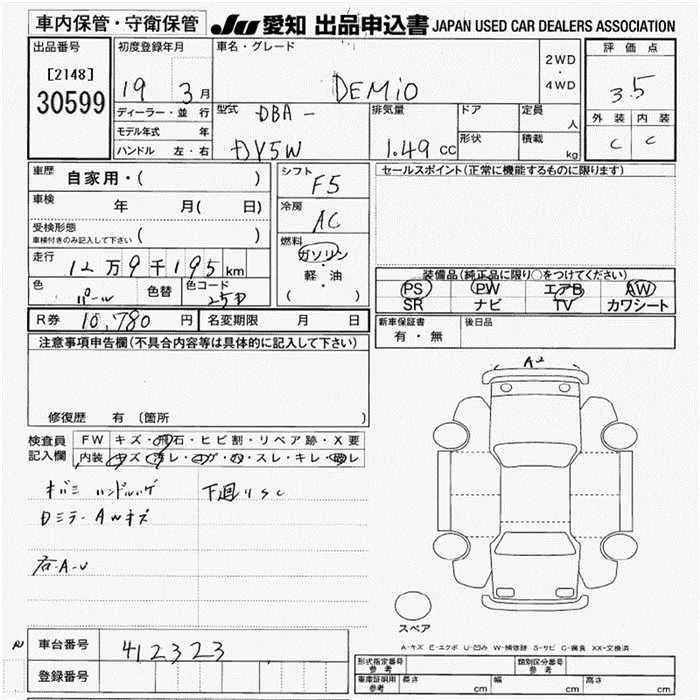 車内保管・守衛保管 JU 愛知 出品申込書 JAPAN USED CAR DEALERS ASSOCIATION
出品番号 初度登録年月 車名・グレード 2WD・4WD 評価点
[2148] 19 3月 DEMiO 3.5
30599 ディーラー・並行 型式 DBA - 排気量 ドア 定員 人 外装 内装
モデル年式 年 DY5W 1.49 cc 形状 積載 kg C C
ハンドル 左・右
車歴 自家用・( ) シフト F5 セールスポイント(正常に機能するものに限ります)
車検 年 月( 日) 冷房 AC
受検形態 ( )
車検付きのみ記入して下さい
走行 12万9千195km 燃料 ガソリン・軽・油 ( ) 装備品(純正品に限り○をつけてください)
色 パール 色替 色コード 25D PS PW エアB AW
SR ナビ TV カワシート
R券 10,780 円 名変期限 月 日 新車保証書 有・無 後日品
注意事項申告欄(不具合内容等は具体的に記入して下さい)
A2
修復歴 有 (箇所
検査員 記入欄 FW キズ・飛石・ヒビ割・リペア跡・X要
内装 キズ・汚レ・コゲ・穴・スレ・キレ・破レ
下廻りSC
Dミラー AWキズ
右-A-U
スペア
A-キズ E-エクボ U-凹み W-補修跡 S-サビ C-腐食 XX-交換済
車台番号 412323
登録番号
形式指定番号 参考 類別区分番号 参考
車庫証明用 参考 長さ cm 幅 cm 高さ cm